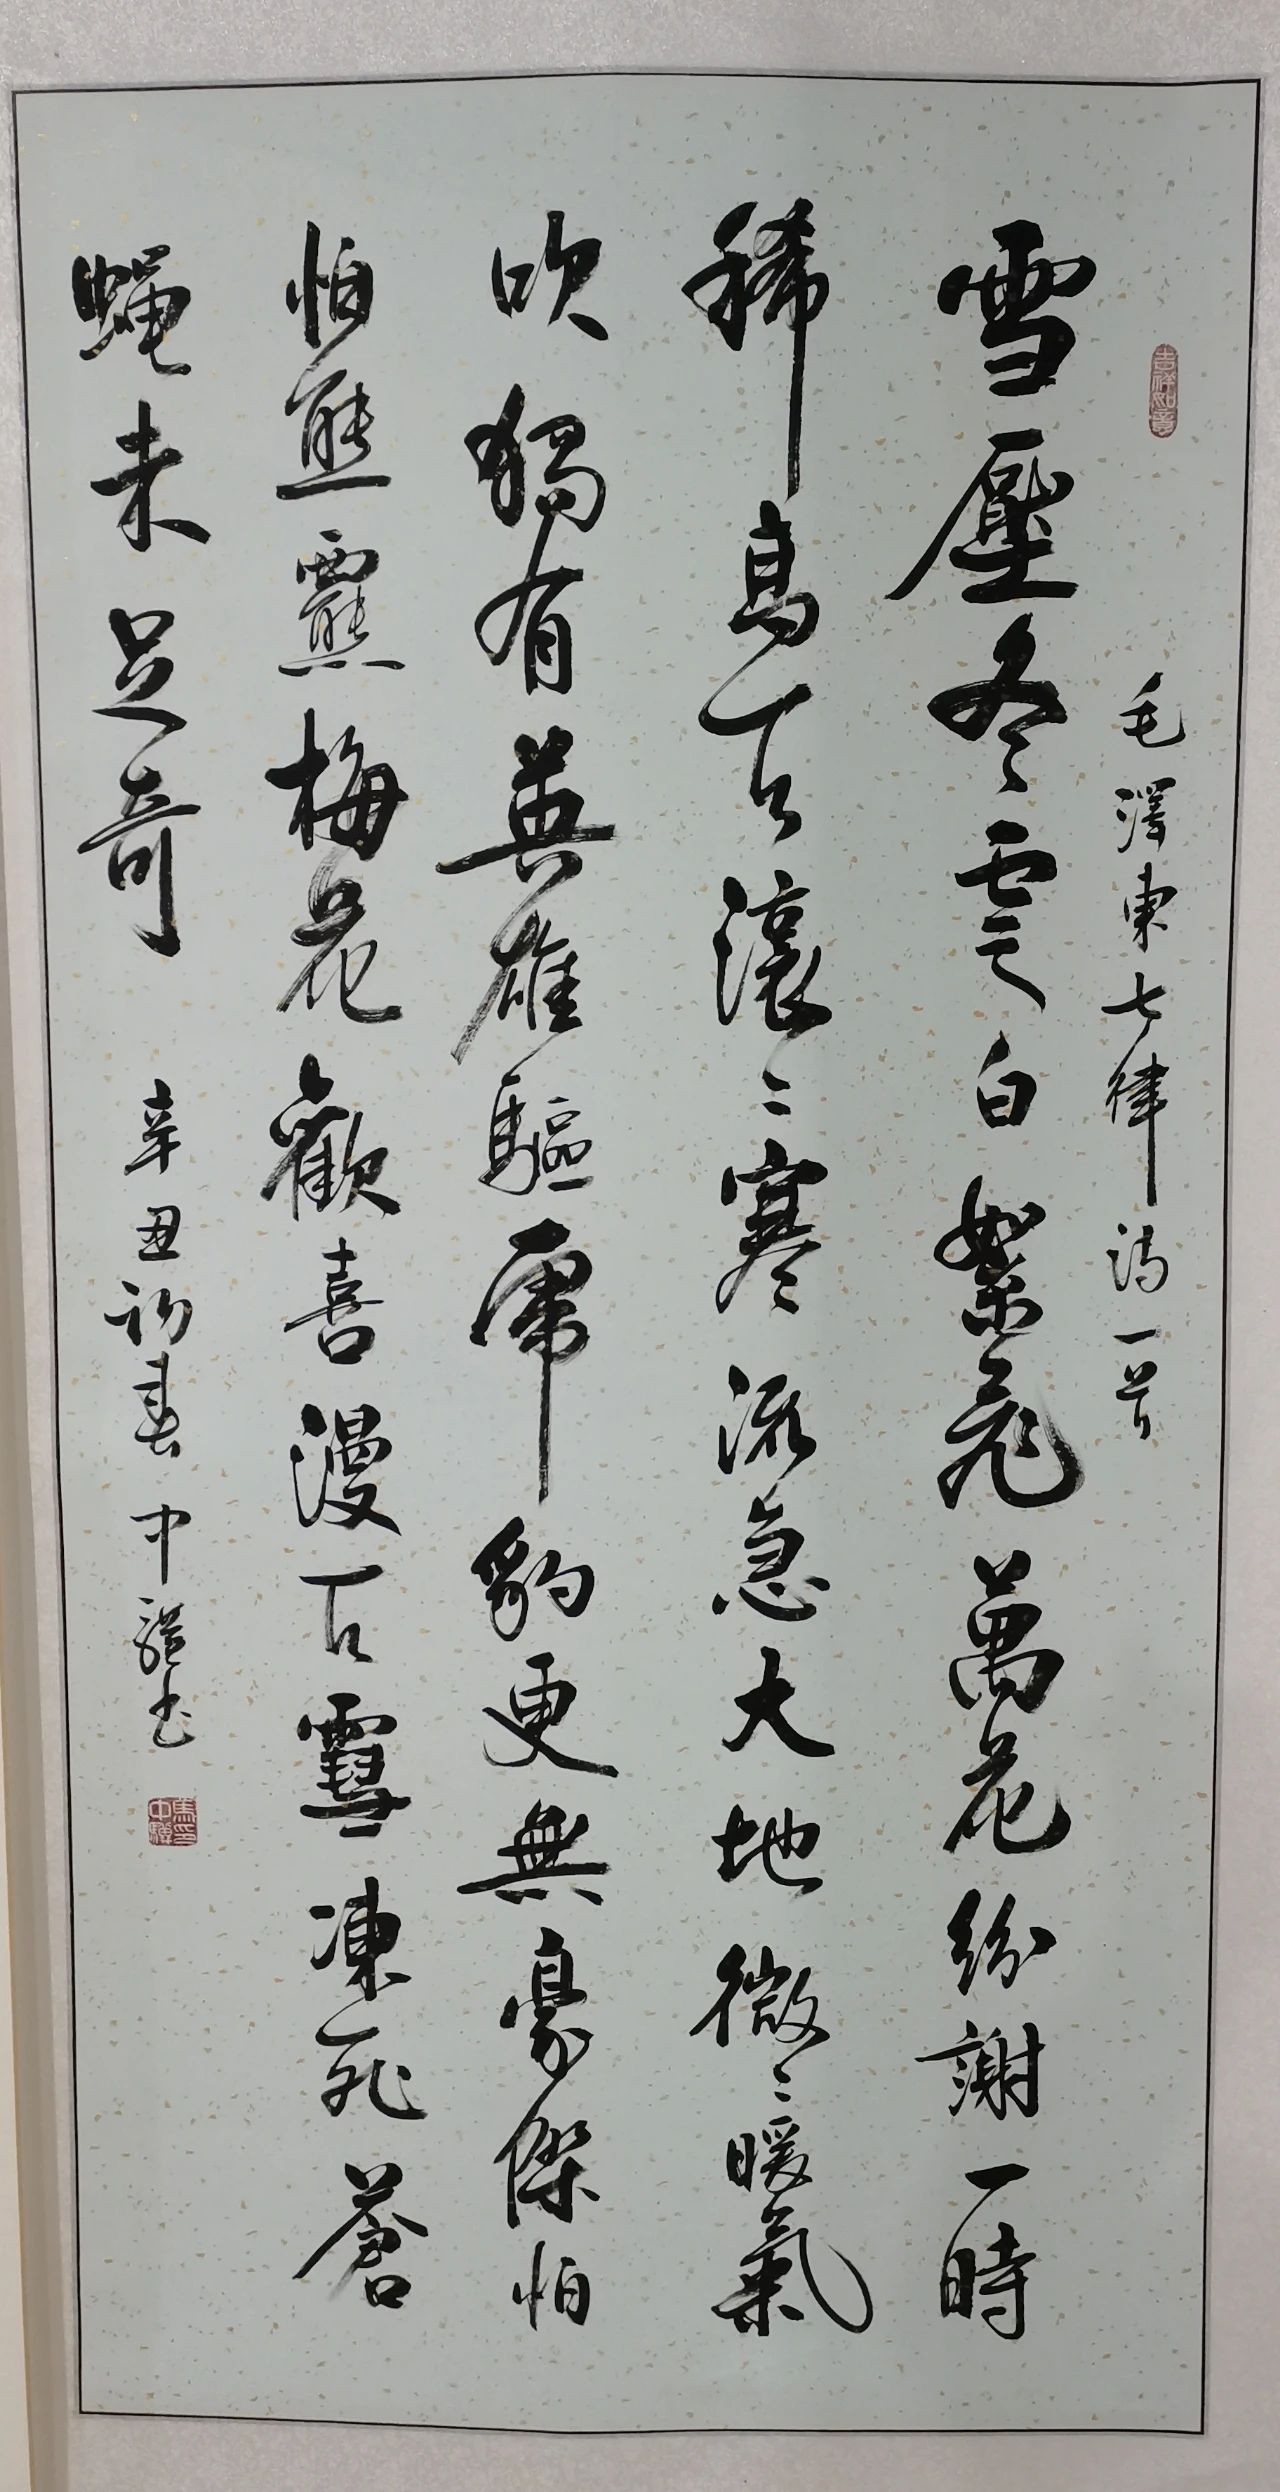 吉祥如意
毛澤東七律詩一首
雪壓冬雲白絮飛萬花紛謝一時
稀高天滾〻寒流急大地微〻暖氣
吹獨有英雄驅虎豹更無豪傑怕
怕熊羆梅花歡喜漫天雪凍死蒼
蝇未足奇
辛丑初春中驥书
馬中驥印